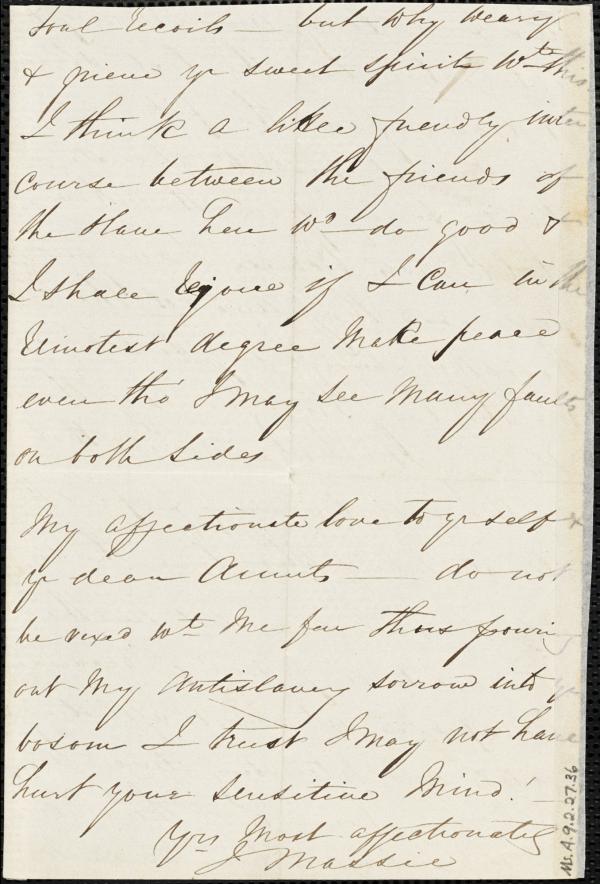 Soul recoils — but why weary
& grieve yr sweet spirit wth this
I think a little friendly inter
course between the friends of
the slave here wd do good &
I shall rejoice if I can in the
remotest degree make peace
even tho' I may see many faults
on both sides
My affectionate love to yrself &
yr dear Aunts — do not
be vexed wth me for thus pouring
out my antislavery sorrow into yr
bosom I trust I may not have
hurt your sensitive mind! —
Yrs most affectionately
J Massie
Ms.A.9.2.27.36